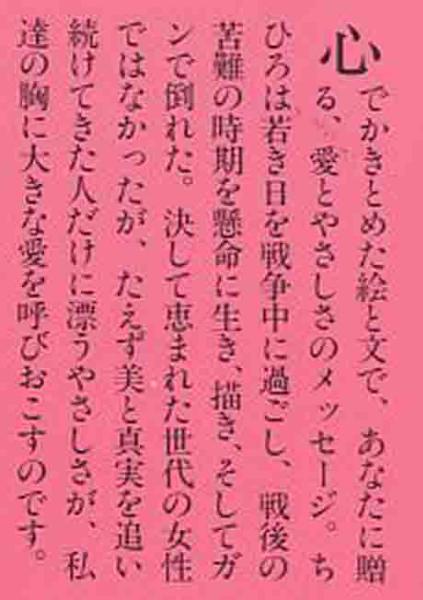 心でかきとめた絵と文で、あなたに贈
る、愛とやさしさのメッセージ。ち
ひろは若き日を戦争中に過ごし、戦後の
苦難の時期を懸命に生き、描き、そしてガ
ンで倒れた。決して恵まれた世代の女性
ではなかったが、たえず美と真実を追い
続けてきた人だけに漂うやさしさが、私
達の胸に大きな愛を呼びおこすのです。